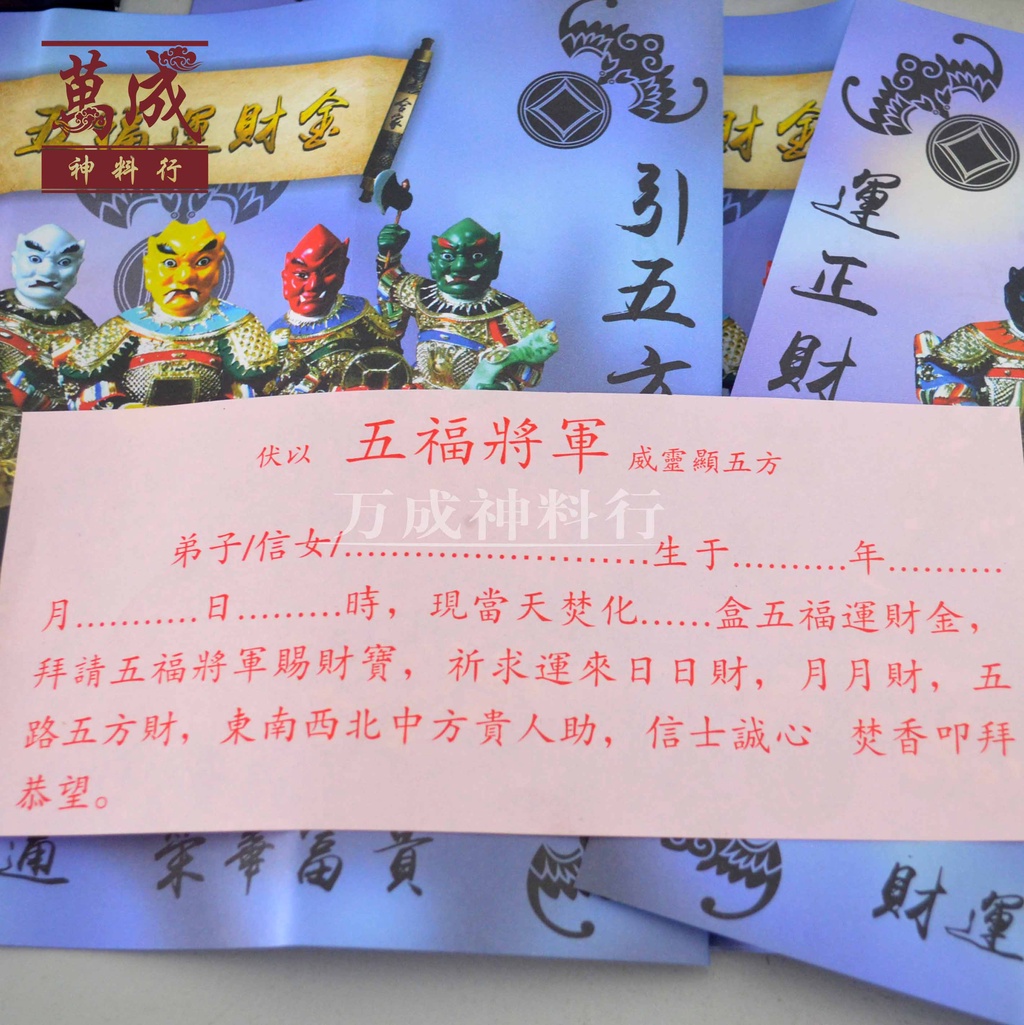 萬成
神料行
五福運財金
合家
引五方
財金
運正財
伏以 五福將軍 威靈顯五方
万成神料行
弟子/信女/..............................生于..........年..........
月...........日.........時，現當天焚化......盒五福運財金，
拜請五福將軍賜財寶，祈求運來日日財，月月財，五
路五方財，東南西北中方貴人助，信士誠心 焚香叩拜
恭望。
通 榮華富貴
財運